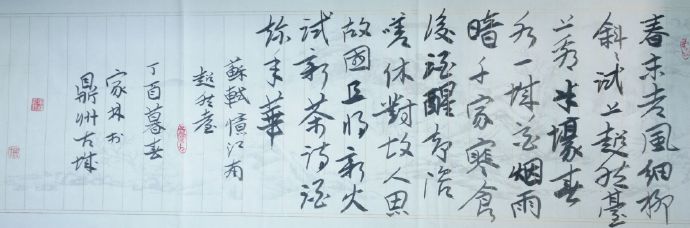 春未老風細柳
斜々试上超然臺
上看半壕春
水一城花烟雨
暗千家寒食
後酒醒却咨
嗟休對故人思
故國且将新火
試新茶詩酒
趁年華
蘇軾憶江南
超然臺
丁酉暮春
家书
鼎州古城